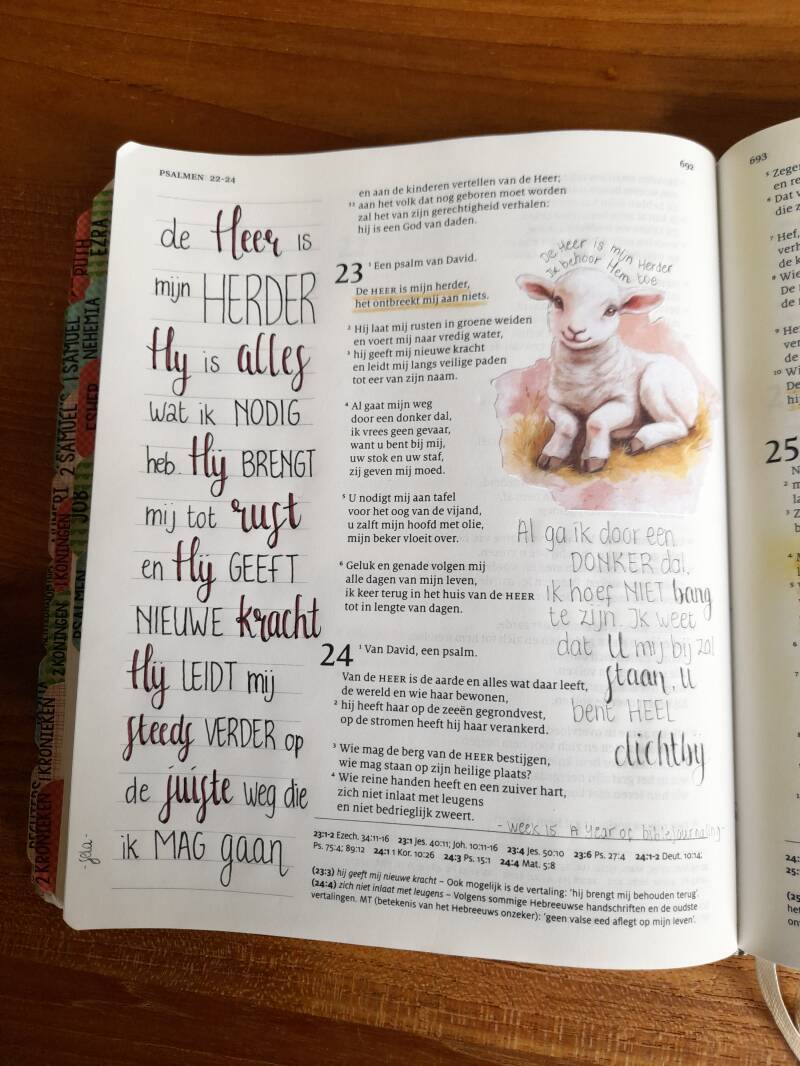 PSALMEN 22-24
692
de Heer is
mijn HERDER
Hij is alles
wat ik NODIG
heb. Hij BRENGT
mij tot rust
en Hij GEEFT
NIEUWE kracht
Hij LEIDT mij
steeds VERDER op
de juiste weg die
ik MAG gaan
en aan de kinderen vertellen van de Heer;
aan het volk dat nog geboren moet worden
zal het van zijn gerechtigheid verhalen:
hij is een God van daden.
23 1 Een psalm van David.
De HEER is mijn herder,
het ontbreekt mij aan niets.
2 Hij laat mij rusten in groene weiden
en voert mij naar vredig water,
3 hij geeft mij nieuwe kracht
en leidt mij langs veilige paden
tot eer van zijn naam.
4 Al gaat mijn weg
door een donker dal,
ik vrees geen gevaar,
want u bent bij mij,
uw stok en uw staf,
zij geven mij moed.
5 U nodigt mij aan tafel
voor het oog van de vijand,
u zalft mijn hoofd met olie,
mijn beker vloeit over.
6 Geluk en genade volgen mij
alle dagen van mijn leven,
ik keer terug in het huis van de HEER
tot in lengte van dagen.
24 1 Van David, een psalm.
Van de HEER is de aarde en alles wat daar leeft,
de wereld en wie haar bewonen,
2 hij heeft haar op de zeeën gegrondvest,
op de stromen heeft hij haar verankerd.
3 Wie mag de berg van de HEER bestijgen,
wie mag staan op zijn heilige plaats?
4 Wie reine handen heeft en een zuiver hart,
zich niet inlaat met leugens
en niet bedrieglijk zweert.
De Heer is mijn Herder
Ik behoor Hem toe
Al ga ik door een
DONKER dal,
ik hoef NIET bang
te zijn. Ik weet
dat U mij bij zal
staan, U
bent HEEL
dichtbij
- week 15 A year of biblejournaling -
23:1-2 Ezech. 34:11-16 23:1 Jes. 40:11; Joh. 10:11-16 23:4 Jes. 50:10 23:6 Ps. 27:4 24:1-2 Deut. 10:14;
Ps. 75:4; 89:12 24:1 1 Kor. 10:26 24:3 Ps. 15:1 24:4 Mat. 5:8
(23:3) hij geeft mij nieuwe kracht – Ook mogelijk is de vertaling: ‘hij brengt mij behouden terug’.
(24:4) zich niet inlaat met leugens – Volgens sommige Hebreeuwse handschriften en de oudste
vertalingen. MT (betekenis van het Hebreeuws onzeker): ‘geen valse eed aflegt op mijn leven’.
693
25
RUTH
EZRA
1 SAMUEL
NEHEMIA
2 SAMUEL
ESTER
NUMERI
JOB
1 KONINGEN
PSALMEN
2 KONINGEN
1 KRONIEKEN
2 KRONIEKEN